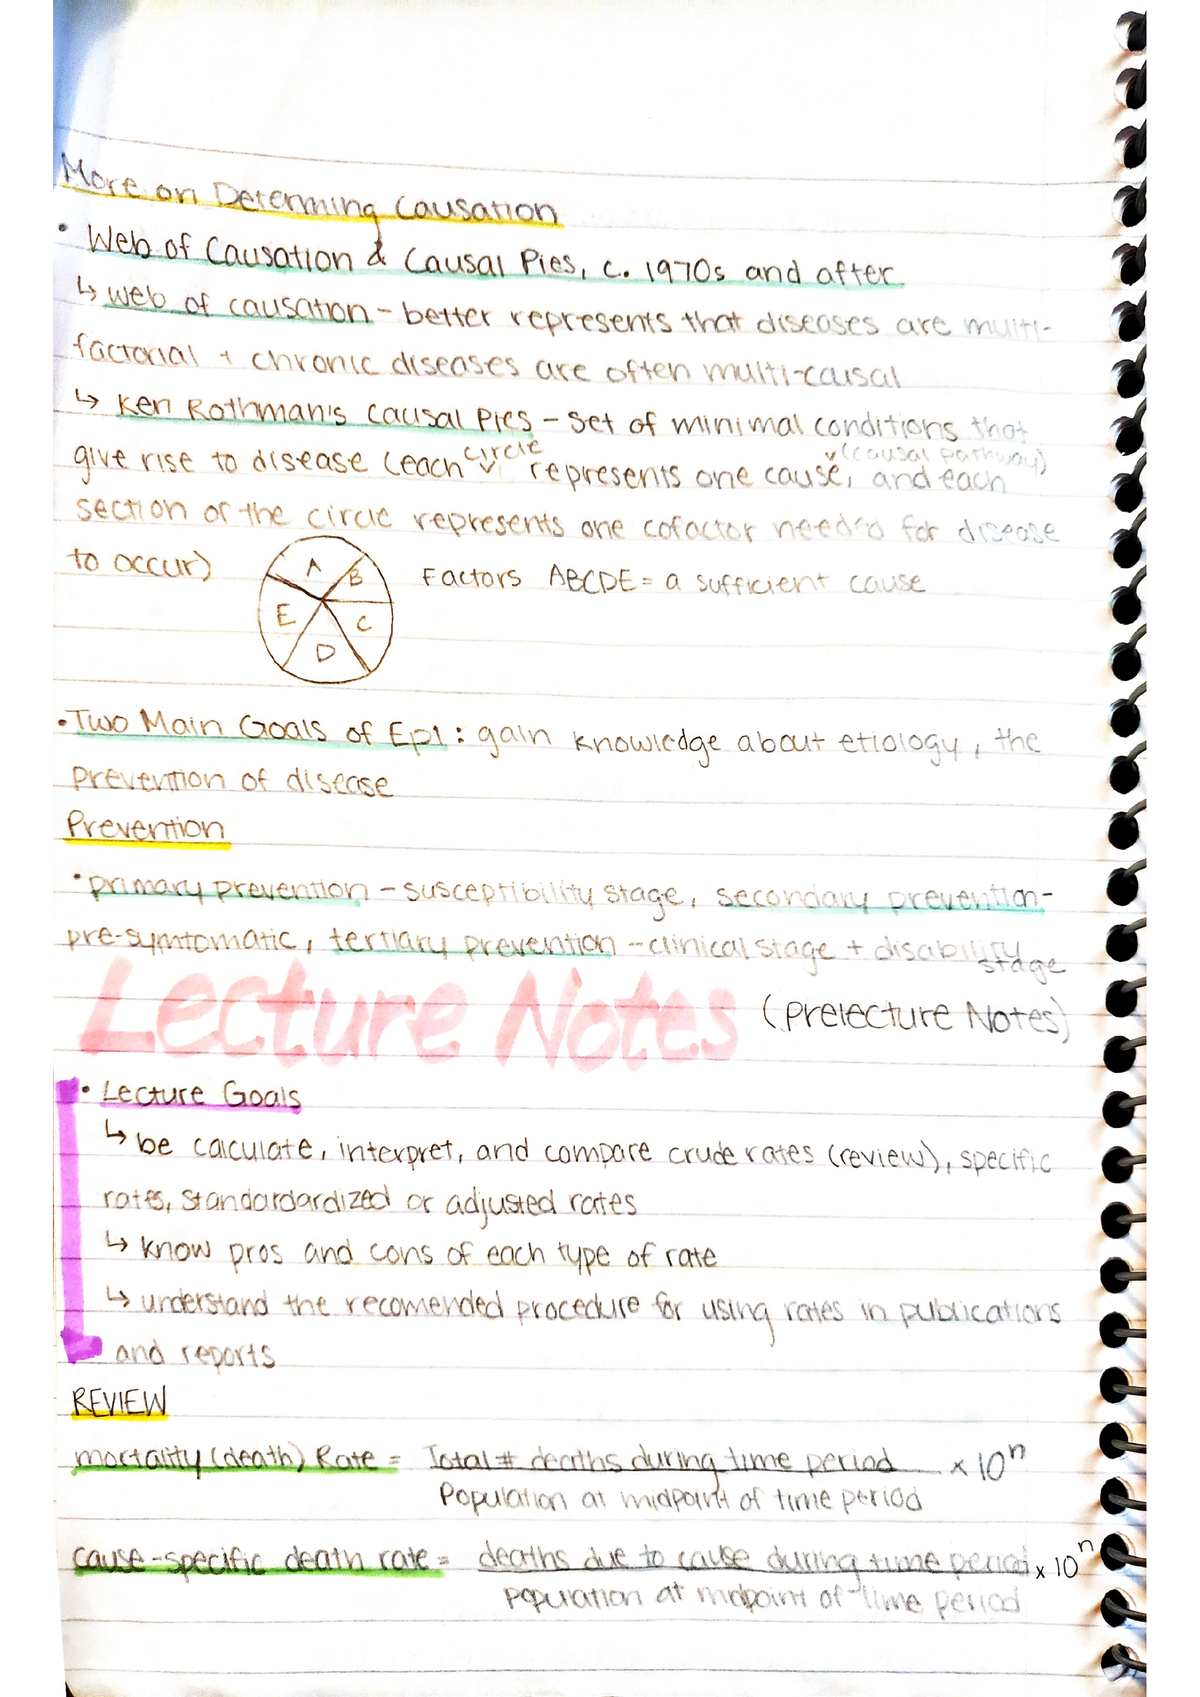 More on Determing Causation
• Web of Causation & Causal Pies, c. 1970s and after
↳ web of causation - better represents that diseases are multi-
factorial + chronic diseases are often multi-causal
↳ Ken Rothman's Causal Pies - set of minimal conditions that
give rise to disease (each circle represents one cause, (causal pathway) and each
section of the circle represents one cofactor needed for disease
to occur)
A B C D E
Factors ABCDE = a sufficient cause
• Two Main Goals of Epi: gain knowledge about etiology, the
prevention of disease
Prevention
• primary prevention - susceptibility stage, secondary prevention-
pre-symtomatic, tertiary prevention - clinical stage + disability stage
Lecture Notes (Prelecture Notes)
• Lecture Goals
↳ be calculate, interpret, and compare crude rates (review), specific
rates, standardardized or adjusted rates
↳ know pros and cons of each type of rate
↳ understand the recomended procedure for using rates in publications
and reports
REVIEW
mortality (death) Rate = Total # deaths during time period x 10^n
Population at midpoint of time period
cause-specific death rate = deaths due to cause during time period x 10^n
population at midpoint of time period